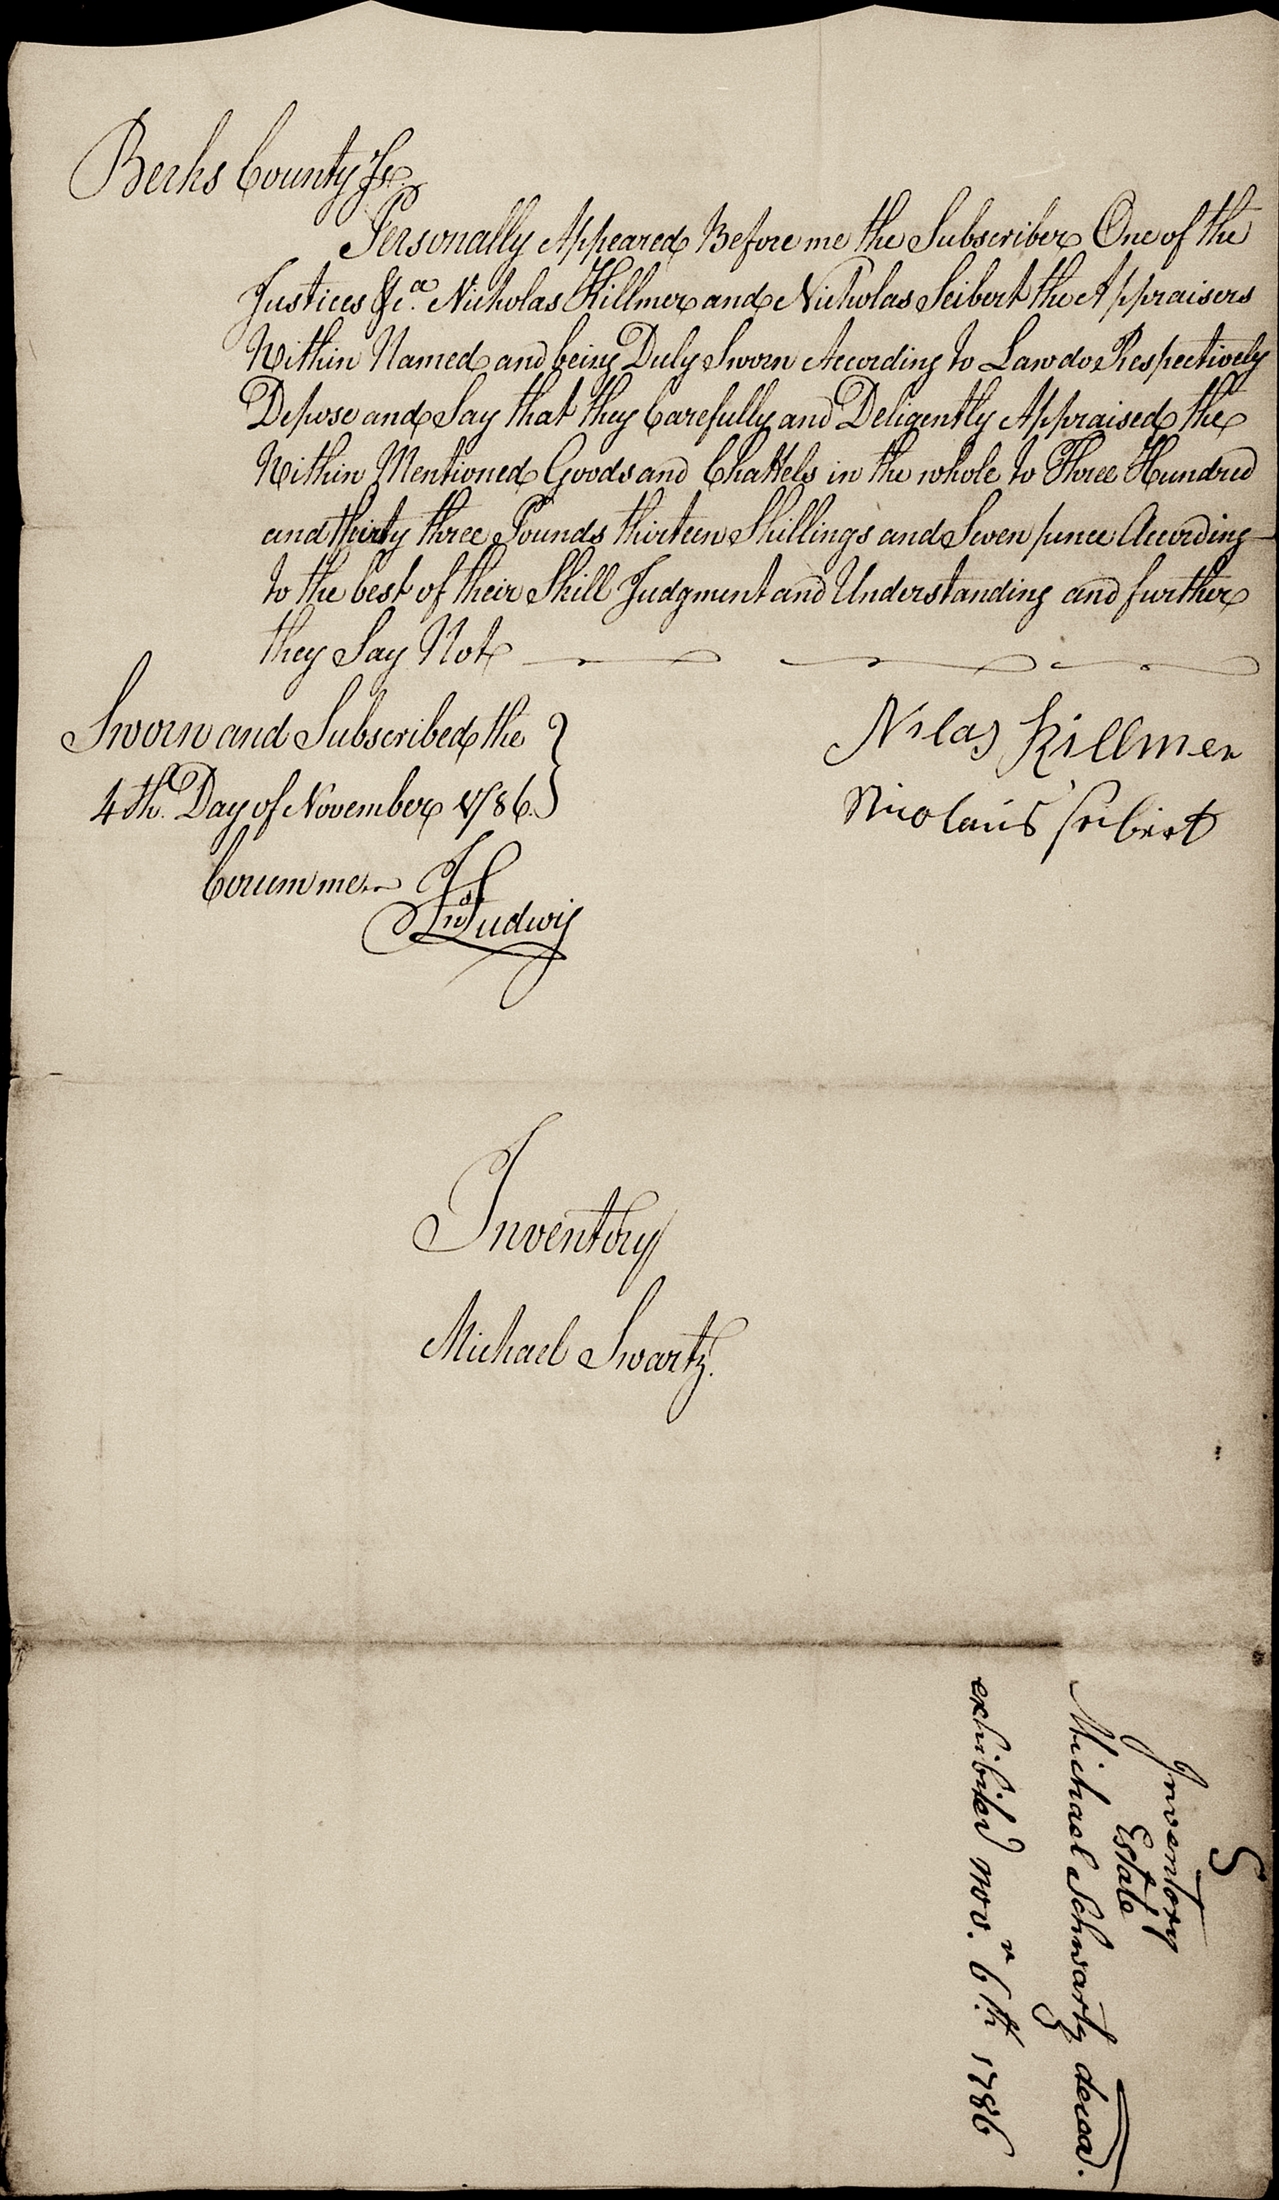 Berks County Ss.
Personally Appeared Before me the Subscriber One of the
Justices &c.a Nicholas Killmer and Nicholas Seibert the Appraisers
Within Named and being Duly Sworn According to Law do Respectively
Depose and Say that they Carefully and Deligently Appraised the
Within Mentioned Goods and Chattels in the whole to Three Hundred
and thirty three Pounds thirteen Shillings and Seven pence According
to the best of their Skill Judgment and Understanding and further
they Say Not
Sworn and Subscribed the
4th. Day of November 1786.
Corum me
Jno Ludwig
Nilas Killmer
Nicolaus Seibert
Inventory
Michael Swartz.
S
Inventory
Estate
Michael Schwartz decead.
exhibited Nov.r 6th 1786